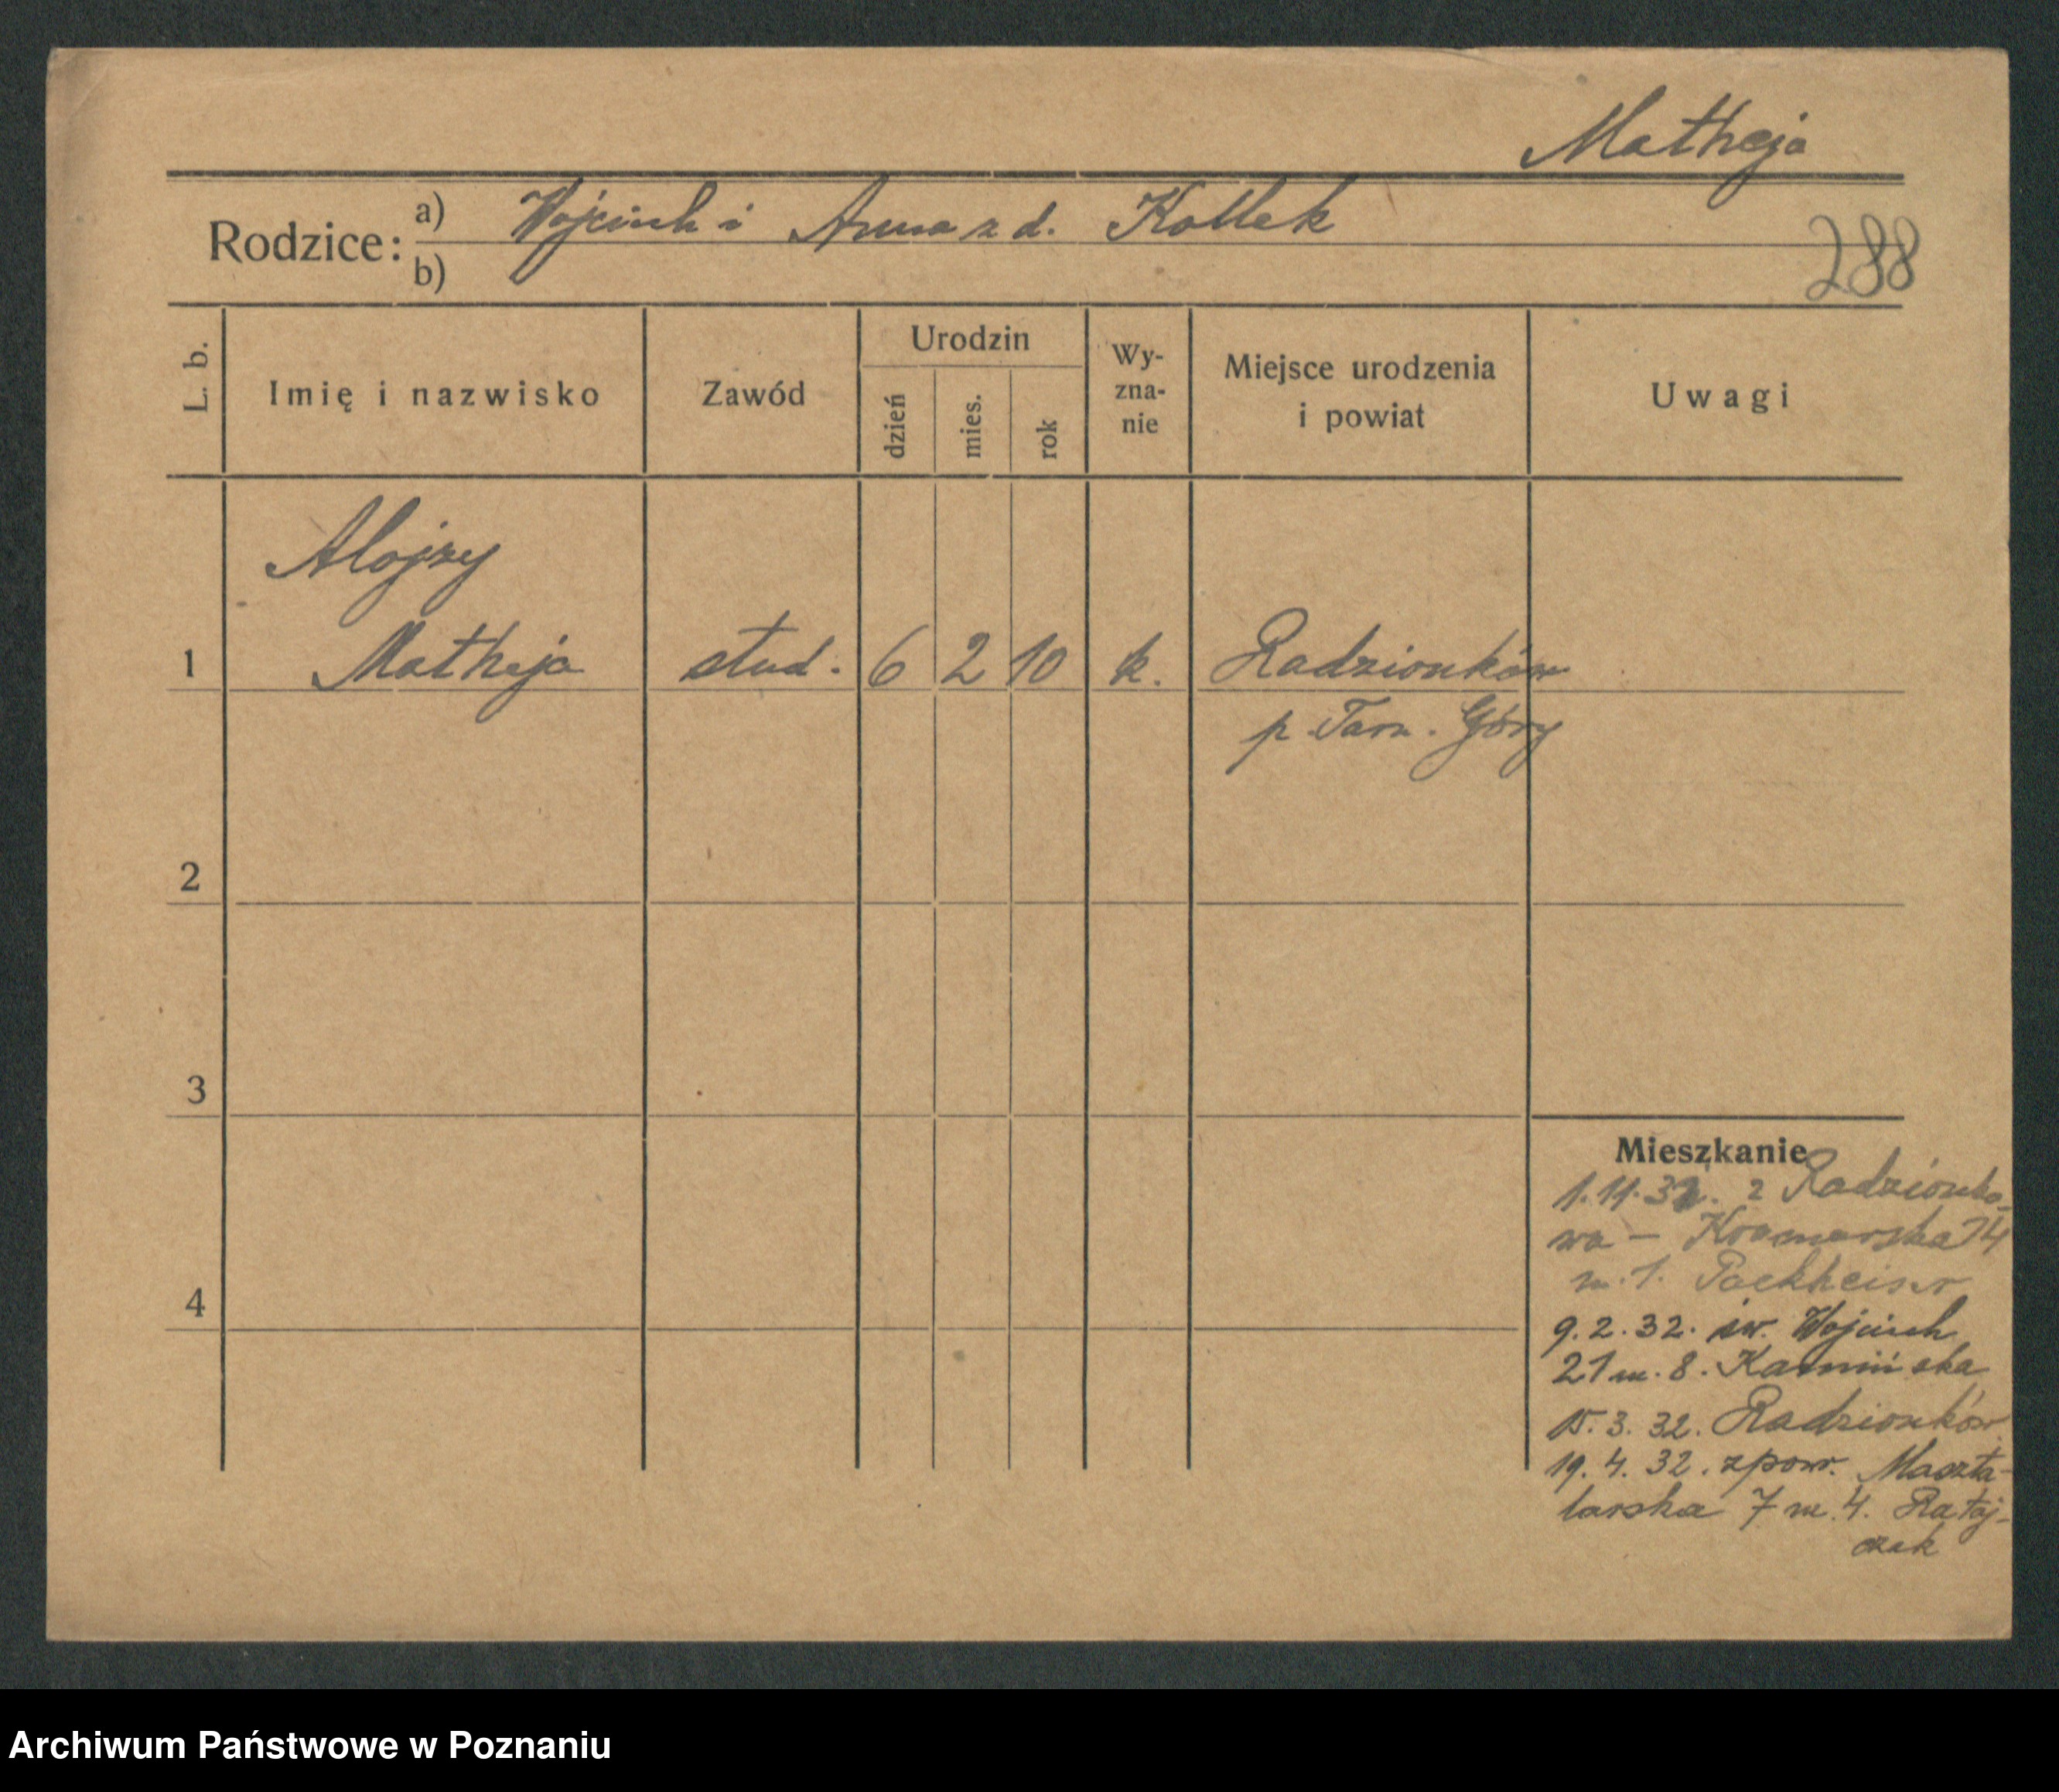 Matheja
Rodzice: a) Wojciech i Anna z d. Kollek
b)
288
L. b.
Imię i nazwisko
Zawód
Urodzin
dzień
mies.
rok
Wy-
zna-
nie
Miejsce urodzenia
i powiat
Uwagi
Alojzy
1 Matheja stud. 6 2 10 k. Radzionków
p. Tarn. Góry
2
3
4
Mieszkanie
1.11.31. z Radzionko-
wa - Kramarska 14
m. 1.
9.2.32. św. Wojciech
21 m. 8. Kamińska
15.3.32. Radzionków
19.4.32. zpow. Maszta-
larska 7 m. 4. Rataj-
czak
Archiwum Państwowe w Poznaniu